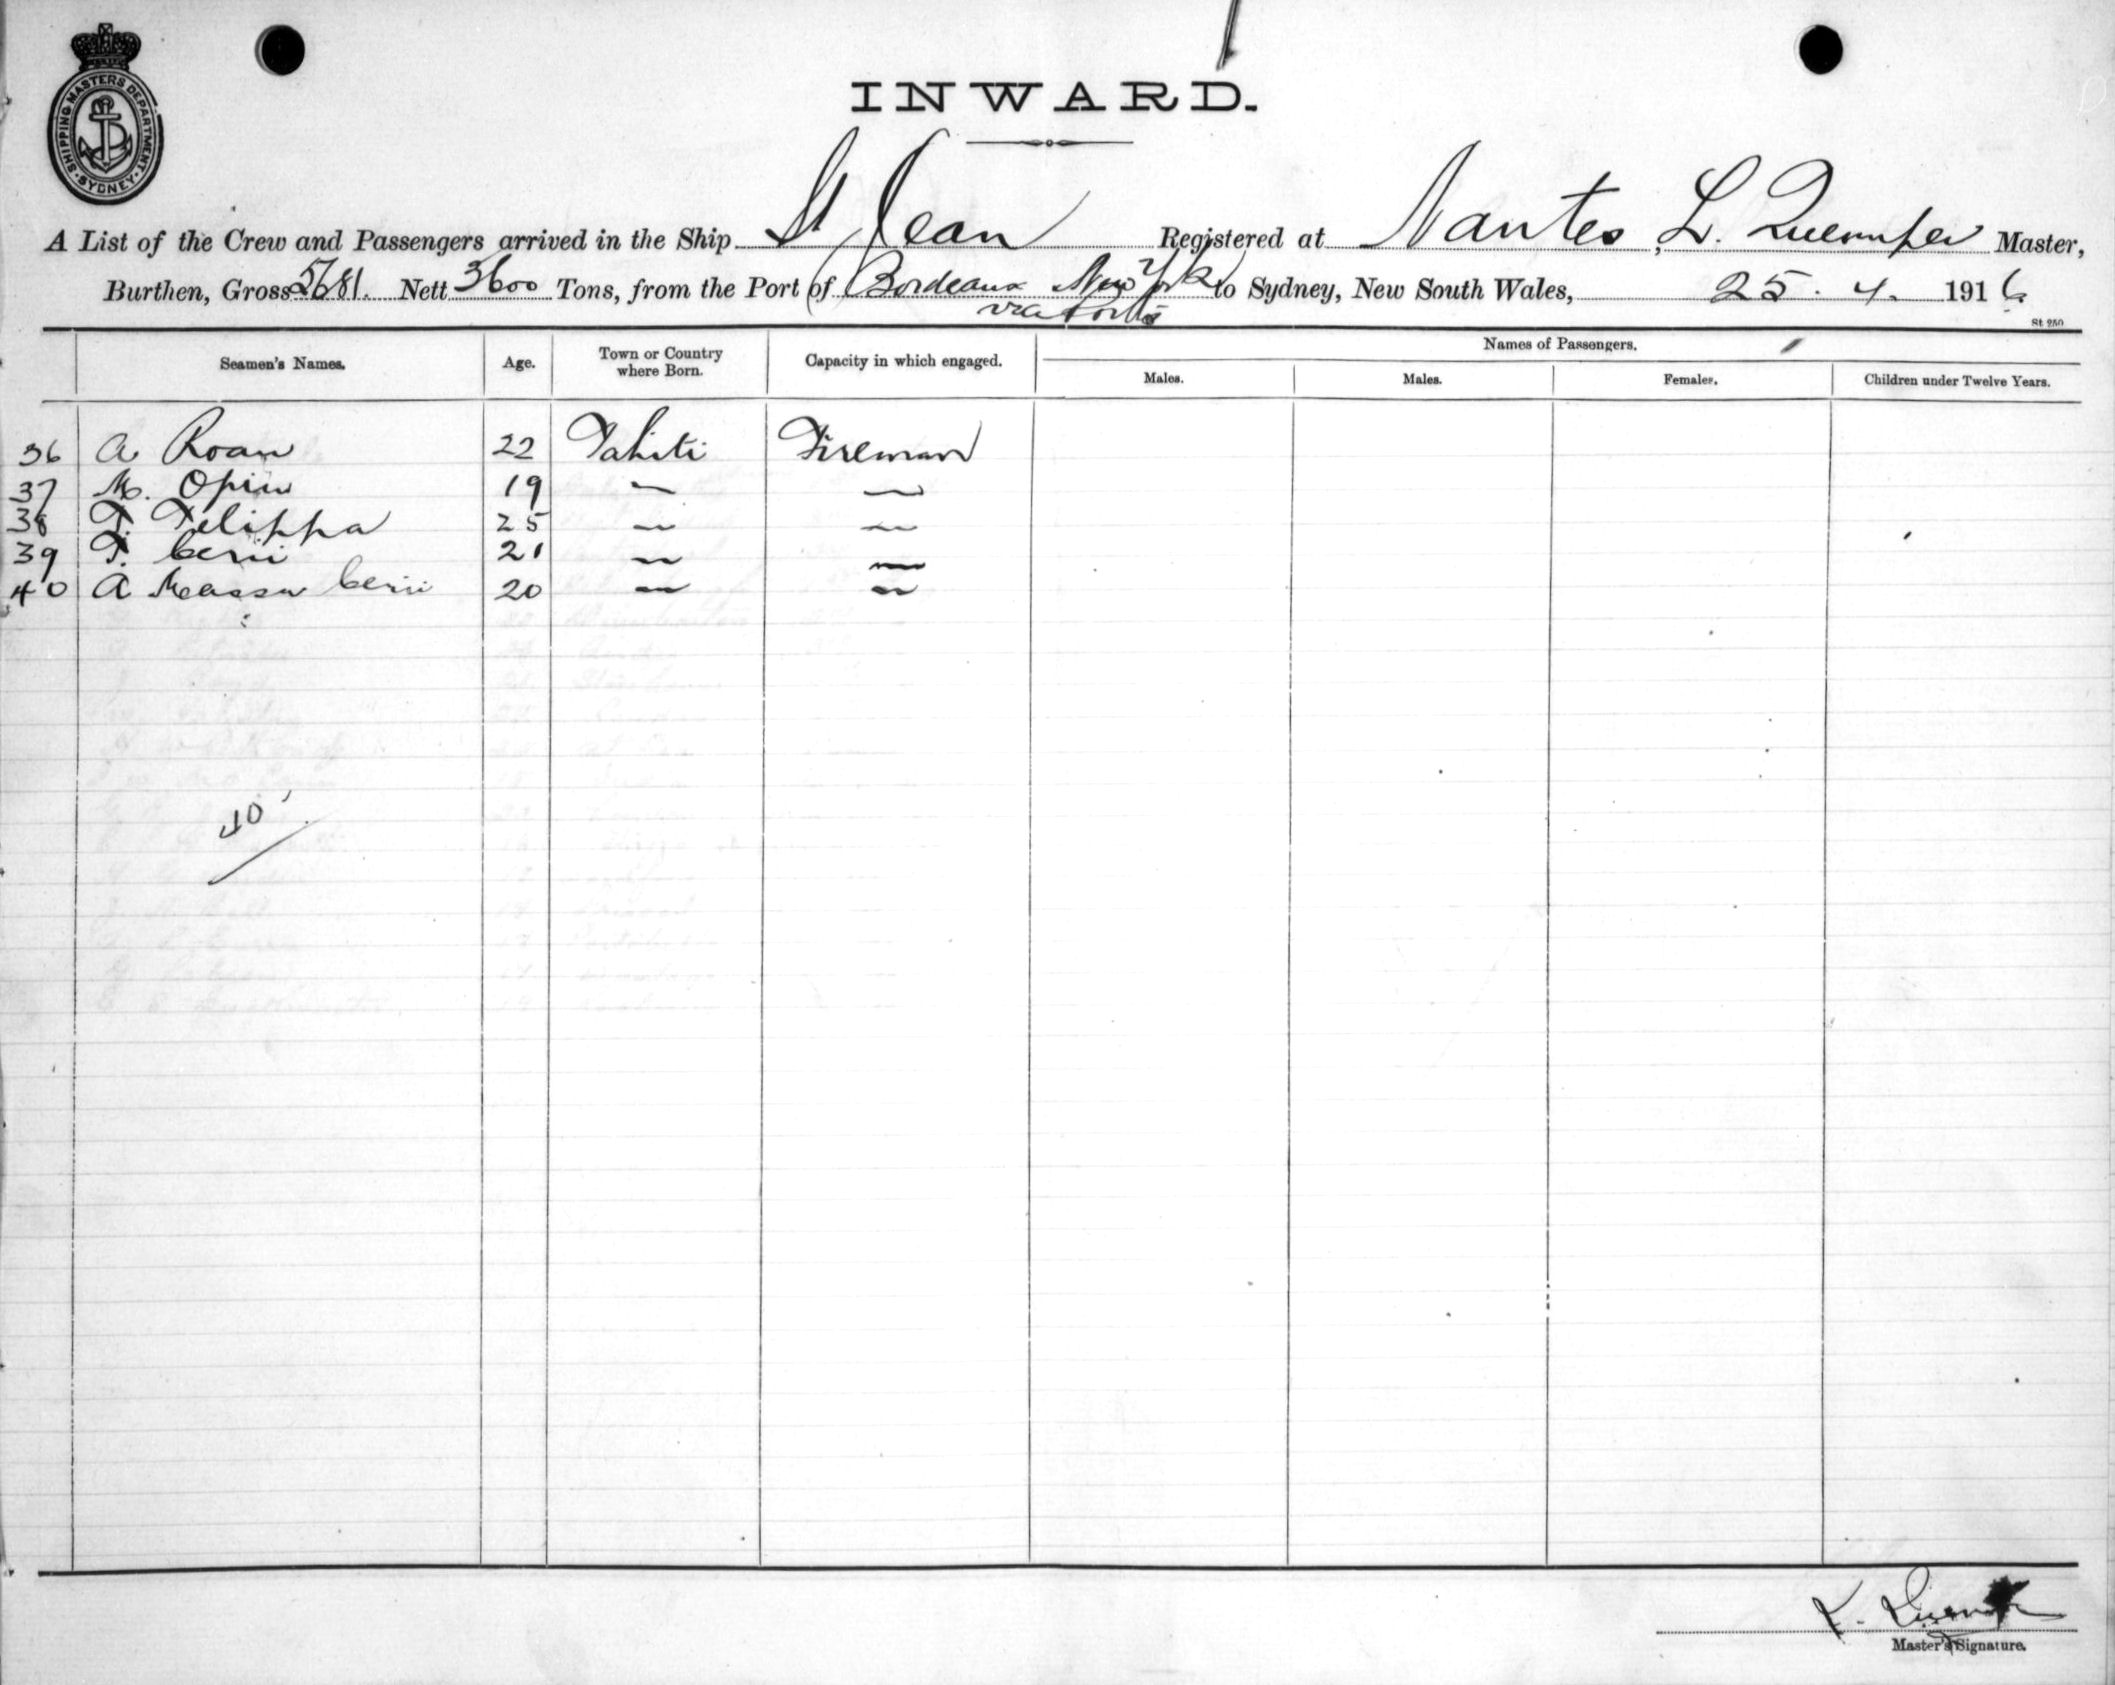 SHIPPING MASTERS DEPARTMENT
SYDNEY
INWARD.
A List of the Crew and Passengers arrived in the Ship St Jean Registered at Nantes, L. Quemper Master,
Burthen, Gross 5681. Nett 3600 Tons, from the Port of (Bordeaux New York) to Sydney, New South Wales, 25. 4. 1916.
via Ports
St 250
Seamen's Names. Age. Town or Country where Born. Capacity in which engaged. Names of Passengers.
Males. Males. Females. Children under Twelve Years.
36 A Roan 22 Tahiti Fireman
37 M. Opiu 19 " "
38 T. Telippa 25 " "
39 T. Cerii 21 " "
40 A Cerii 20 " "
40
Master's Signature.